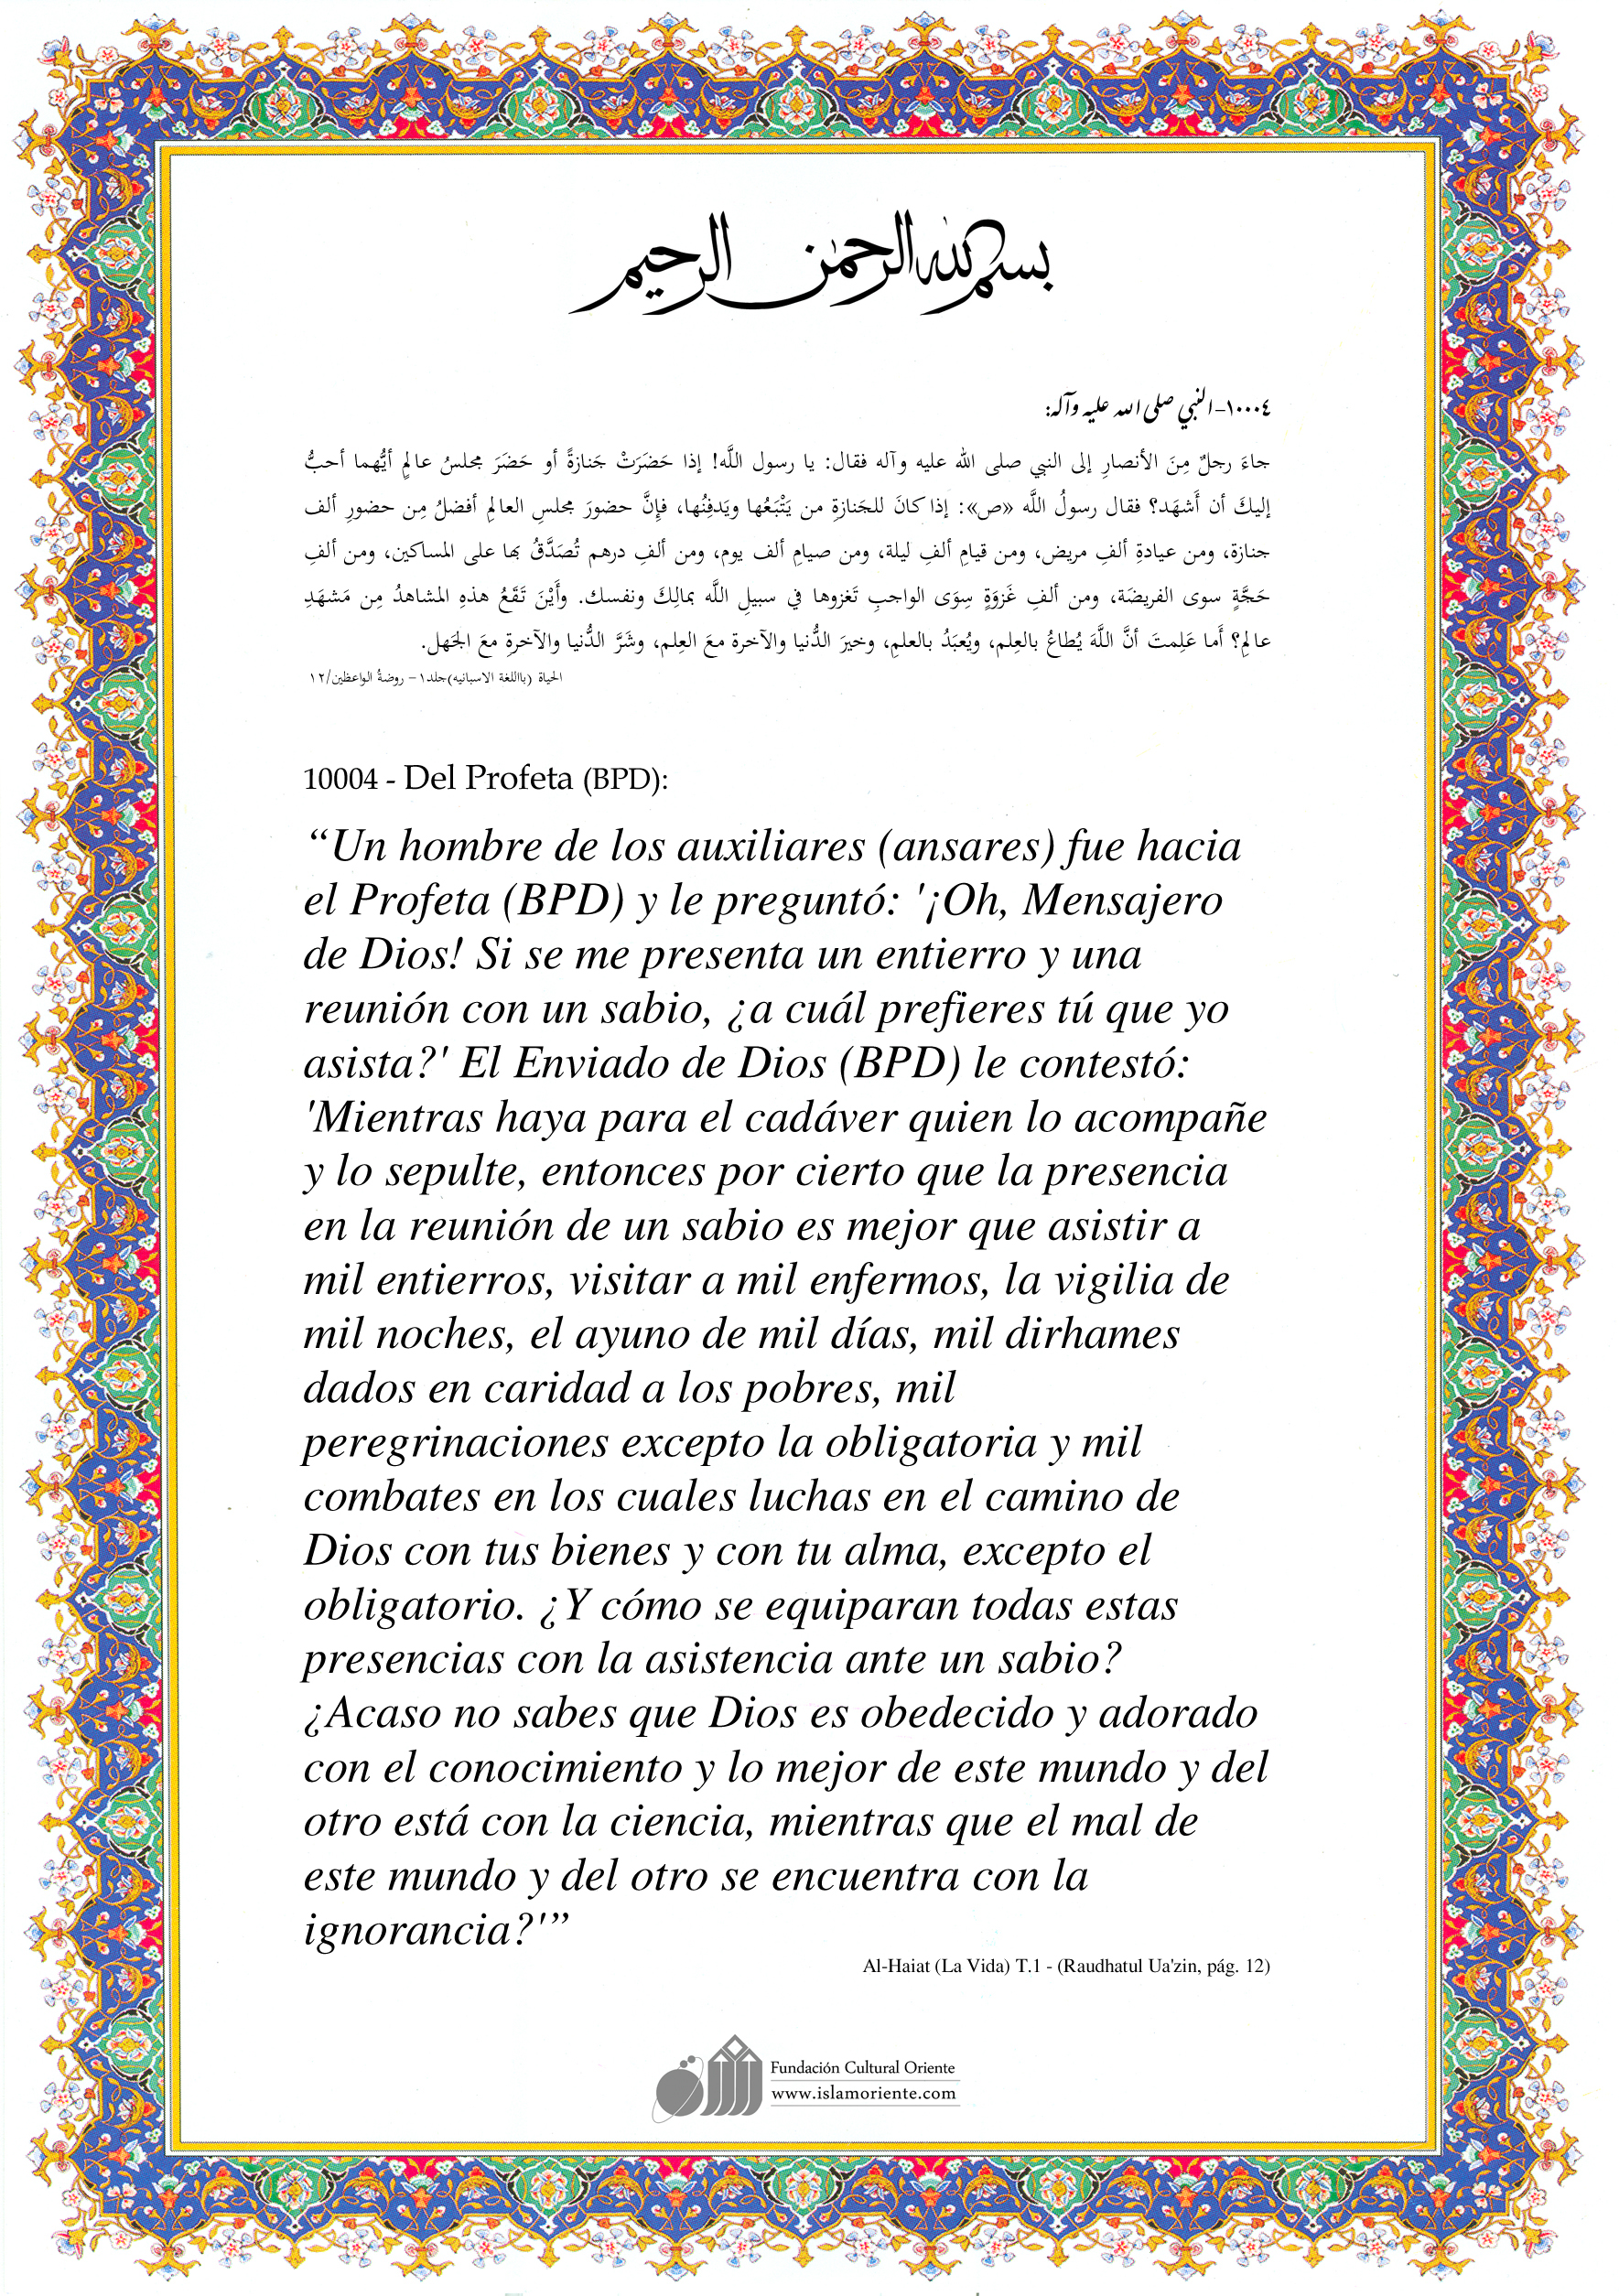 بسم الله الرحمن الرحيم
١٠٠٠٤-النبي صلى الله عليه وآله:
جاءَ رجلٌ مِنَ الأنصارِ إلى النبي صلى الله عليه وآله فقال: يا رسول اللَّه! إذا حَضَرَتْ جَنازةً أو حَضَرَ مجلسُ عالمٍ أيُّهما أحبُّ
إليكَ أن أَشهَد؟ فقال رسولُ اللَّه «ص»: إذا كانَ للجَنازةِ من يَتْبَعُها ويَدفِنُها، فإنَّ حضورَ مجلسِ العالمِ أفضلُ مِن حضورِ ألف
جنازة، ومن عيادةِ ألفِ مريض، ومن قيامِ ألفِ ليلة، ومن صيامِ ألف يوم، ومن ألفِ درهم تُصَدَّقُ بها على المساكين، ومن ألفِ
حَجَّةٍ سوى الفريضَة، ومن ألفِ غَزوَةٍ سِوَى الواجبِ تَغزوها في سبيلِ اللَّه بمالِكَ ونفسك. وأَيْنَ تَقَعُ هذهِ المشاهدُ مِن مَشهَدِ
عالمِ؟ أَما عَلِمتَ أنَّ اللَّهَ يُطاعُ بالعِلم، ويُعبَدُ بالعلمِ، وخيرَ الدُّنيا والآخرة معَ العِلم، وشَرَّ الدُّنيا والآخرةِ معَ الجَهل.
الحياة (بااللغة الاسبانيه)جلد١- روضةُ الواعظين/١٢
10004 - Del Profeta (BPD):
“Un hombre de los auxiliares (ansares) fue hacia
el Profeta (BPD) y le preguntó: '¡Oh, Mensajero
de Dios! Si se me presenta un entierro y una
reunión con un sabio, ¿a cuál prefieres tú que yo
asista?' El Enviado de Dios (BPD) le contestó:
'Mientras haya para el cadáver quien lo acompañe
y lo sepulte, entonces por cierto que la presencia
en la reunión de un sabio es mejor que asistir a
mil entierros, visitar a mil enfermos, la vigilia de
mil noches, el ayuno de mil días, mil dirhames
dados en caridad a los pobres, mil
peregrinaciones excepto la obligatoria y mil
combates en los cuales luchas en el camino de
Dios con tus bienes y con tu alma, excepto el
obligatorio. ¿Y cómo se equiparan todas estas
presencias con la asistencia ante un sabio?
¿Acaso no sabes que Dios es obedecido y adorado
con el conocimiento y lo mejor de este mundo y del
otro está con la ciencia, mientras que el mal de
este mundo y del otro se encuentra con la
ignorancia?'”
Al-Haiat (La Vida) T.1 - (Raudhatul Ua'zin, pág. 12)
Fundación Cultural Oriente
www.islamoriente.com